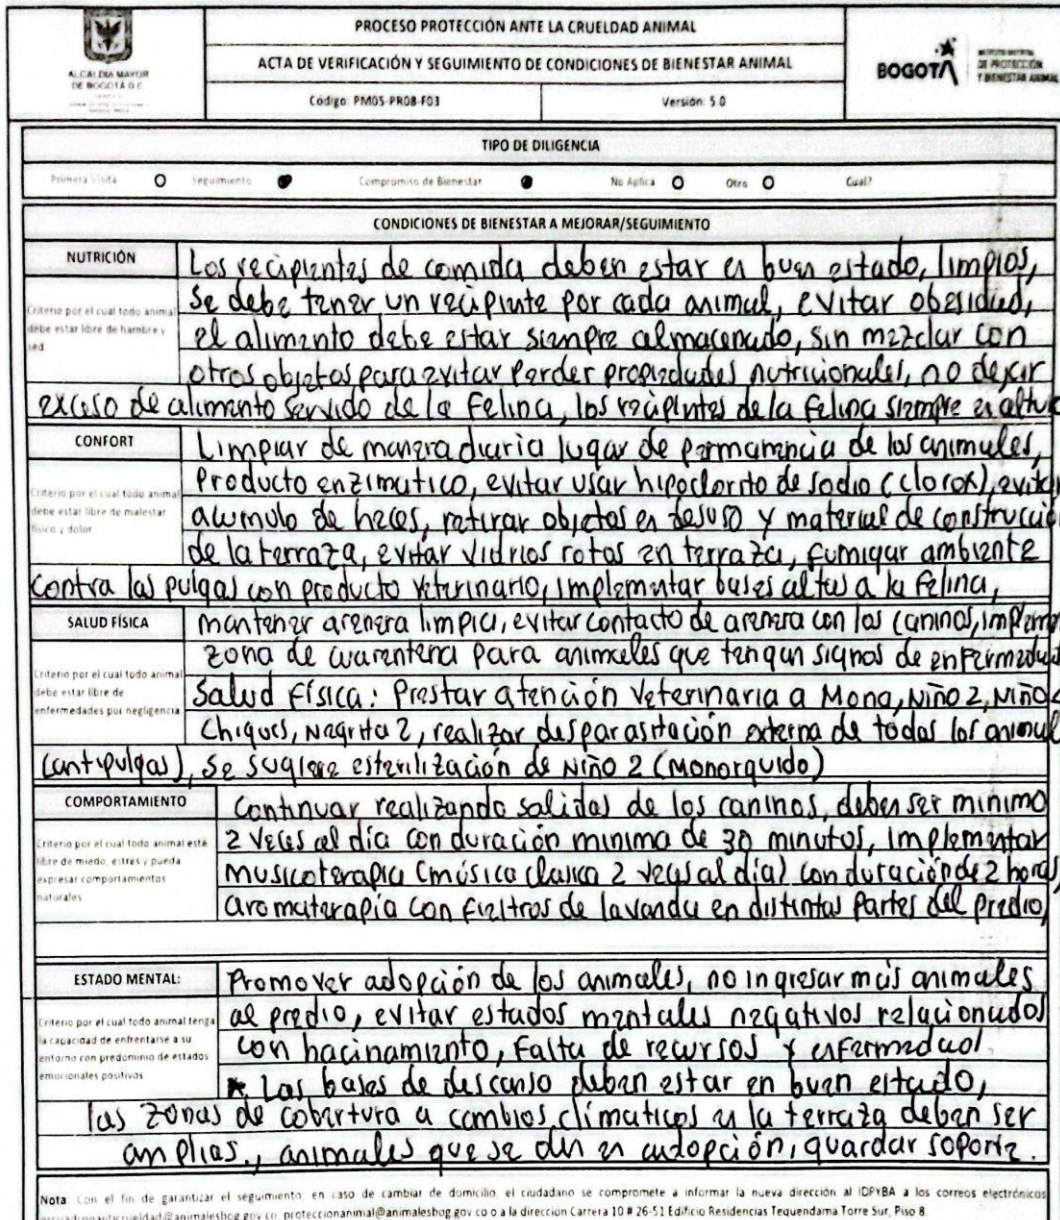 ALCALDÍA MAYOR
DE BOGOTÁ D.C.
PROCESO PROTECCIÓN ANTE LA CRUELDAD ANIMAL
ACTA DE VERIFICACIÓN Y SEGUIMIENTO DE CONDICIONES DE BIENESTAR ANIMAL
Código: PM05-PR08-F03 Versión: 5.0
BOGOTÁ
INSTITUTO DISTRITAL
DE PROTECCIÓN
Y BIENESTAR ANIMAL
TIPO DE DILIGENCIA
Primera Visita Seguimiento Compromiso de Bienestar No Aplica Otro Cual?
CONDICIONES DE BIENESTAR A MEJORAR/SEGUIMIENTO
NUTRICIÓN
Criterio por el cual todo animal
debe estar libre de hambre y
sed
Los recipientes de comida deben estar en buen estado, limpios,
se debe tener un recipiente por cada animal, evitar obesidad,
el alimento debe estar siempre almacenado, sin mezclar con
otros objetos para evitar perder propiedades nutricionales, no dejar
exceso de alimento servido de la felina, los recipientes de la felina siempre en altura
CONFORT
Criterio por el cual todo animal
debe estar libre de malestar
físico y dolor
Limpiar de manera diaria lugar de permanencia de los animales,
Producto enzimatico, evitar usar hipoclorito de sodio (clorox), evitar
acumulo de heces, retirar objetos en desuso y material de construcción
de la terraza, evitar vidrios rotos en terraza, fumigar ambiente
contra las pulgas con producto veterinario, implementar bases altas a la felina,
SALUD FÍSICA
Criterio por el cual todo animal
debe estar libre de
enfermedades por negligencia
mantener arenera limpia, evitar contacto de arenera con los caninos, implemen
zona de cuarentena para animales que tengan signos de enfermedad
Salud Física: Prestar atención veterinaria a Mona, Niño 2, Niño
Chiques, Negrita 2, realizar desparasitación externa de todos los animales
(antipulgas), se sugiere esterilización de Niño 2 (Monorquido)
COMPORTAMIENTO
Criterio por el cual todo animal esté
libre de miedo, estres y pueda
expresar comportamientos
naturales
Continuar realizando salidas de los caninos, deben ser minimo
2 veces al día con duración minima de 30 minutos, Implementar
musicoterapia (música clasica 2 veces al día) con duración de 2 horas,
aromaterapia con fieltros de lavanda en distintas partes del predio,
ESTADO MENTAL:
Criterio por el cual todo animal tenga
la capacidad de enfrentarse a su
entorno con predominio de estados
emocionales positivos
Promover adopción de los animales, no ingresar más animales
al predio, evitar estados mentales negativos relacionados
con hacinamiento, falta de recursos y enfermedad.
* Las bases de descanso deben estar en buen estado,
las zonas de cobertura a cambios climaticos en la terraza deben ser
amplias., animales que se den en adopción, guardar soporte.
Nota: Con el fin de garantizar el seguimiento, en caso de cambiar de domicilio, el ciudadano se compromete a informar la nueva dirección al IDPYBA a los correos electrónicos
escuadronanticrueldad@animalesbog.gov.co, proteccionanimal@animalesbog.gov.co o a la dirección Carrera 10 # 26-51 Edificio Residencias Tequendama Torre Sur, Piso 8.